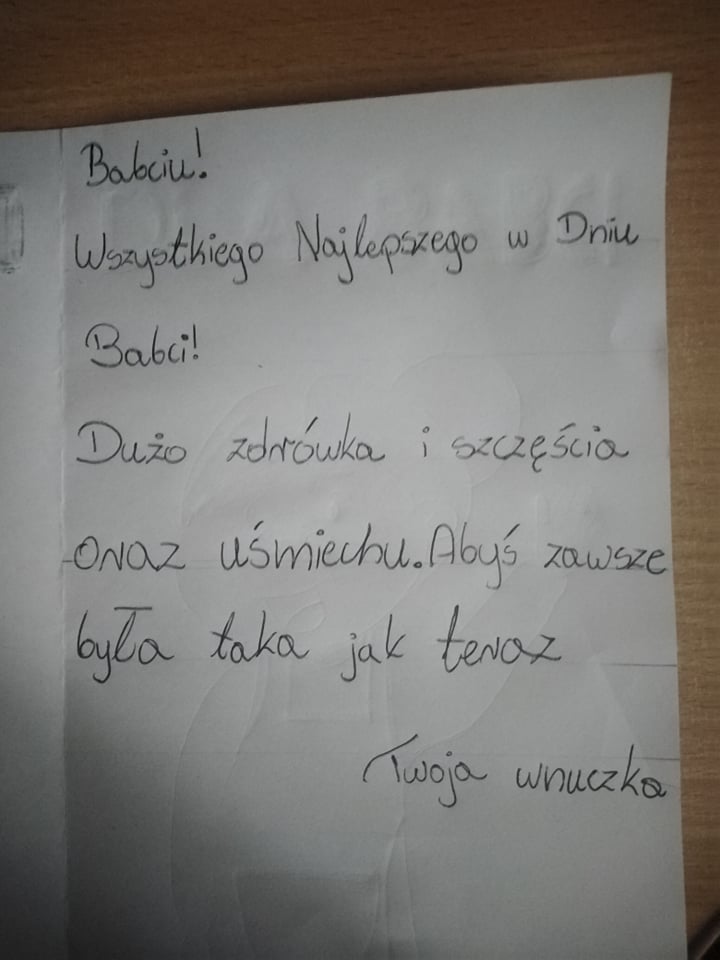 Babciu!
Wszystkiego Najlepszego w Dniu
Babci!
Dużo zdrówka i szczęścia
oraz uśmiechu. Abyś zawsze
była taka jak teraz
Twoja wnuczka